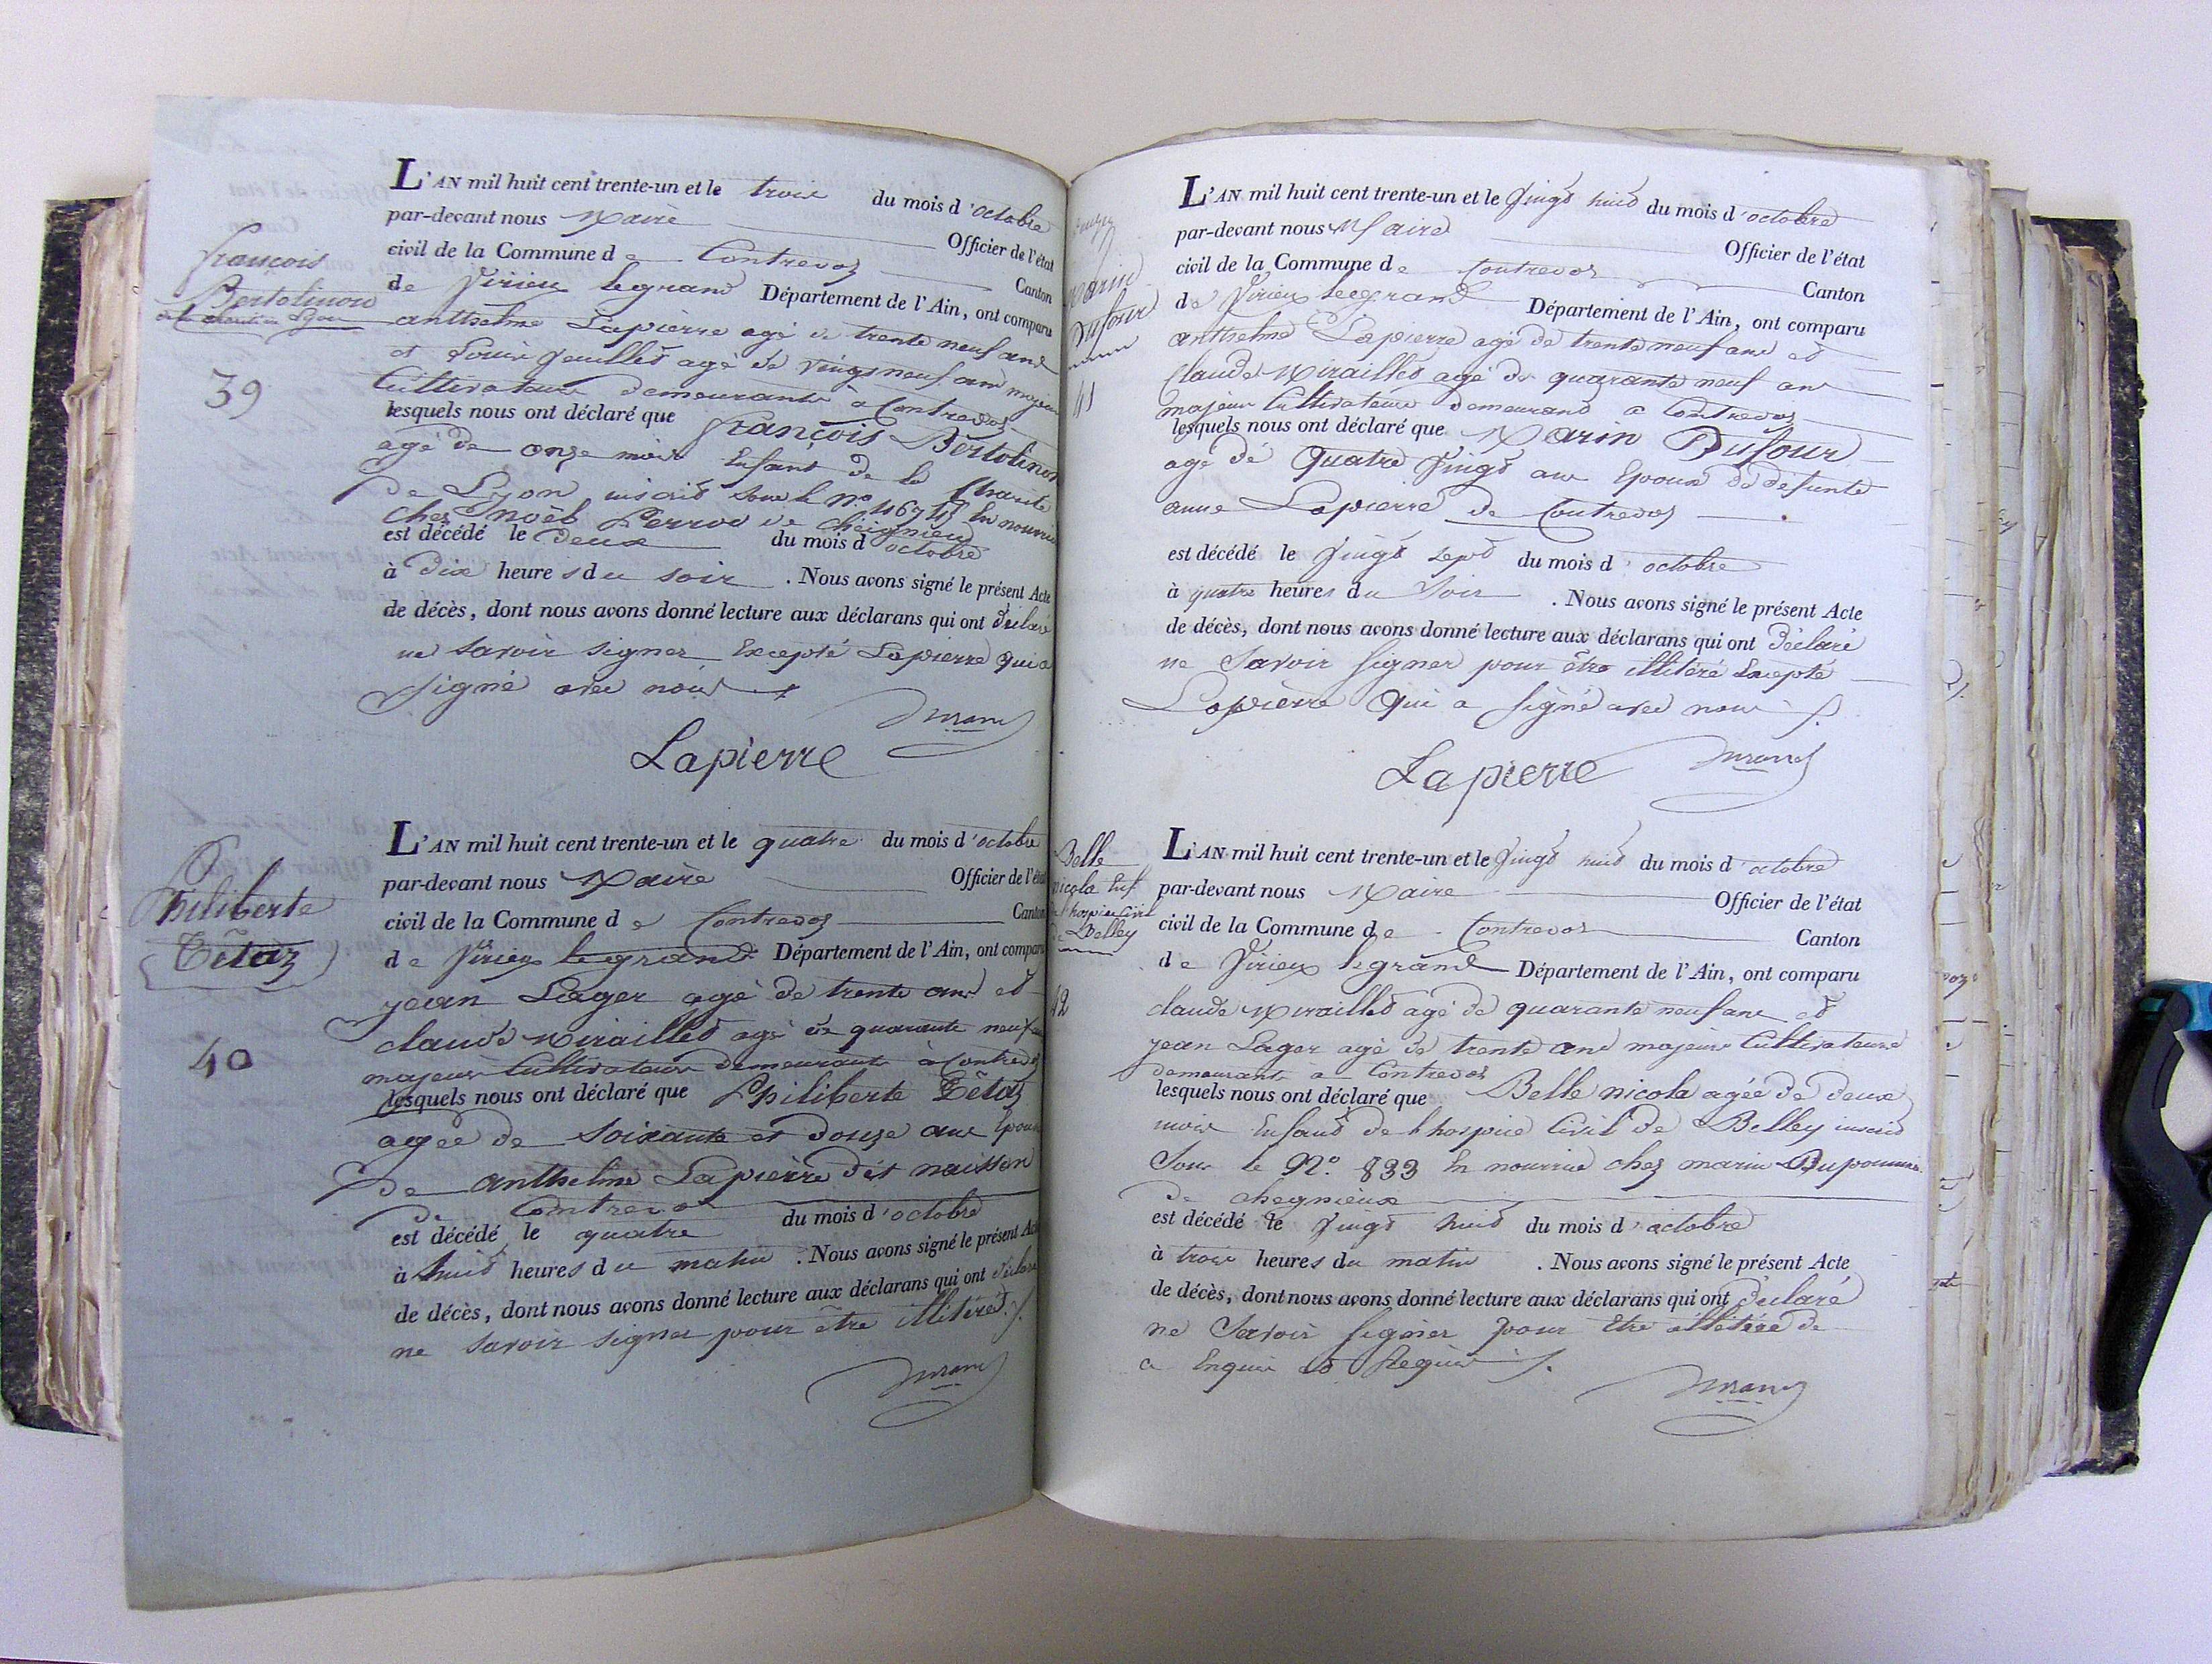 françois
Bertolinon
39
L'AN mil huit cent trente-un et le trois du mois d'octobre
par-devant nous Maire Officier de l'état
civil de la Commune de Contrevoz Canton
de Virieu legrand Département de l'Ain, ont comparu
anthelme Lapierre agé de trente neuf ans
et Louis feuillet agé de vingt neuf ans majeurs
Cultivateurs demeurants a Contrevoz
lesquels nous ont déclaré que françois Bertolinon
agé de onze mois Enfant de la Charité
de Lyon inscrit sous le no En nourrice
chez noël Perrod de cheignieu
est décédé le deux du mois d'octobre
à dix heures du soir . Nous avons signé le présent Acte
de décès, dont nous avons donné lecture aux déclarans qui ont déclaré
ne savoir signer Excepté Lapierre qui a
signé avec nous
Lapierre
Philiberte
Tétaz
40
L'AN mil huit cent trente-un et le quatre du mois d'octobre
par-devant nous Maire Officier de l'état
civil de la Commune de Contrevoz Canton
de Virieu legrand Département de l'Ain, ont comparu
jean Lager agé de trente ans et
claude Miraillet agé de quarante neuf ans
majeurs Cultivateurs demeurants à Contrevoz
lesquels nous ont déclaré que Philiberte Tétaz
agée de soixante et douze ans Epouse
de anthelme Lapierre dit maisson
de Contrevoz
est décédé le quatre du mois d'octobre
à huit heures du matin . Nous avons signé le présent Acte
de décès, dont nous avons donné lecture aux déclarans qui ont déclaré
ne savoir signer pour être illitéré ./.
marin
Dufour
41
L'AN mil huit cent trente-un et le vingt huit du mois d'octobre
par-devant nous Maire Officier de l'état
civil de la Commune de Contrevoz Canton
de Virieu legrand Département de l'Ain, ont comparu
anthelme Lapierre agé de trente neuf ans et
Claude Miraillet agé de quarante neuf ans
majeurs Cultivateurs demeurand a Contrevoz
lesquels nous ont déclaré que Marin Dufour
agé de quatre vingt ans Epoux de défunte
anne Lapierre de Contrevoz
est décédé le vingt sept du mois d'octobre
à quatre heures du Soir . Nous avons signé le présent Acte
de décès, dont nous avons donné lecture aux déclarans qui ont déclaré
ne Savoir signer pour être illitéré Excepté
Lapierre qui a signé avec nous ./.
Lapierre
Belle
nicola Enf.
de l'hospice Civil
de Belley
42
L'AN mil huit cent trente-un et le vingt huit du mois d'octobre
par-devant nous Maire Officier de l'état
civil de la Commune de Contrevoz Canton
de Virieu legrand Département de l'Ain, ont comparu
claude Miraillet agé de quarante neuf ans et
jean Lager agé de trente ans majeurs Cultivateurs
demeurants a Contrevoz
lesquels nous ont déclaré que Belle nicola agée de deux
mois Enfant de lhospice Civil de Belley inscrit
Sous le No. 833 En nourrice chez marin
de chegnieux
est décédé le vingt huit du mois d'octobre
à trois heures du matin . Nous avons signé le présent Acte
de décès, dont nous avons donné lecture aux déclarans qui ont déclaré
ne Savoir signer pour être illitéré de
a Enquis et Requis ./.